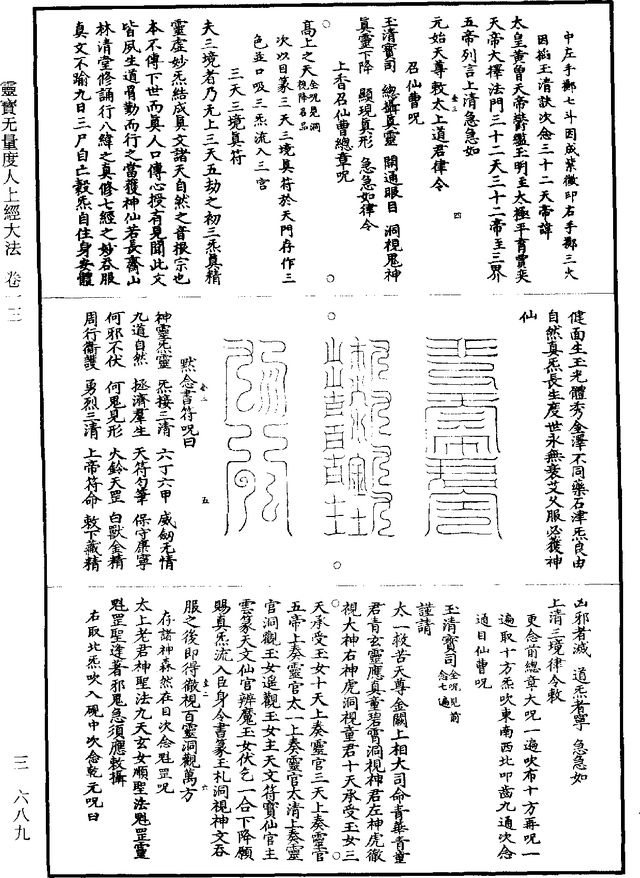 中左手鄷七斗因成紫微印右手鄷三火
因掐玉清訣次念三十二天帝諱
太皇黃曾天帝鬱鑑玉明至太極平育賈奕
天帝大擇法門三十二天三十二帝至三界
五帝列言上清急急如
元始天尊敕太上道君律令
召仙曹呪
玉清寶司 總攝真靈 開通眼目 洞視鬼神
真靈下降 顯現真形 急急如律令
上香召仙曹總章呪
高上之天全呪見洞視降召品
次以目篆三天三境真符於天門存作三
色並口吸三炁流入三宮
三天三境真符
夫三境者乃无上三天五劫之初三炁真精
靈虛妙炁結成真文諸天自然之音根宗也
本不傳下世而真人口傳心授有見聞此文
皆夙生道骨勤而行之當獲神仙若長齋山
林清堂修誦行八緯之真修七經之妙吞服
真文不踰九日三尸自亡穀炁自住身安體
健面生玉光體秀金澤不同藥石津炁良由
自然真炁長生度世永無衰艾久服必獲神
仙
默念書符呪曰
神靈炁靈 炁接三清 六丁六甲 威劍无情
九道自然 拯濟羣生 天符勿筆 保守康寧
何邪不伏 何鬼見形 火鈴天罡 白獸金精
周行衛護 勇烈三清 上帝符命 敕下藏精
凶邪者滅 道炁者寧 急急如
上清三境律令敕
更念前總章大呪一遍吹布十方再呪一
遍取十方炁吹東南西北叩齒九通次念
通目仙曹呪
玉清寶司全呪見前念七遍
謹請
太一救苦天尊金闕上相大司命青華青童
君青玄靈應真童碧霄洞視神君左神虎徹
視大神右神虎洞視童君十天承受玉女三
天承受玉女十天上奏靈官三天上奏靈官
五帝上奏靈官太一上奏靈官太清上奏靈
官洞觀玉女遥觀玉女主天文符寶仙官主
雲篆天文仙官辨魔玉女伏乞一合下降願
賜真炁流入臣身令書篆玉札洞視神文吞
服之後即得徹視百靈洞觀萬方
存諸神森然在目次念魁罡呪
太上老君神聖法九天玄女順聖法魁罡靈
魁罡聖逢著邪鬼急須應敕攝
右取北炁吹入硯中次念乾元呪曰
靈寶无量度人上經大法 卷一三
三 六八九